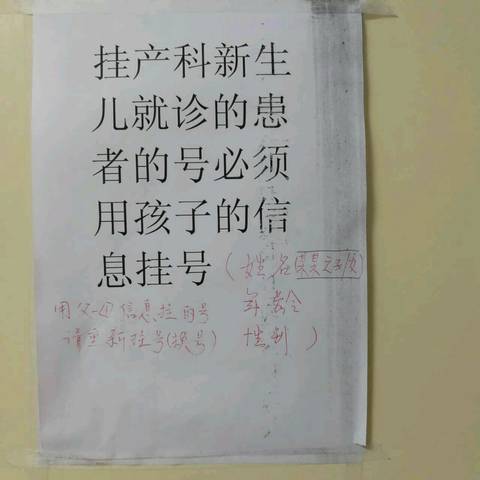 挂产科新生
儿就诊的患
者的号必须
用孩子的信
息挂号(姓名某某之子/女
年龄
性别)
用父母信息挂的号
请重新挂号(换号)